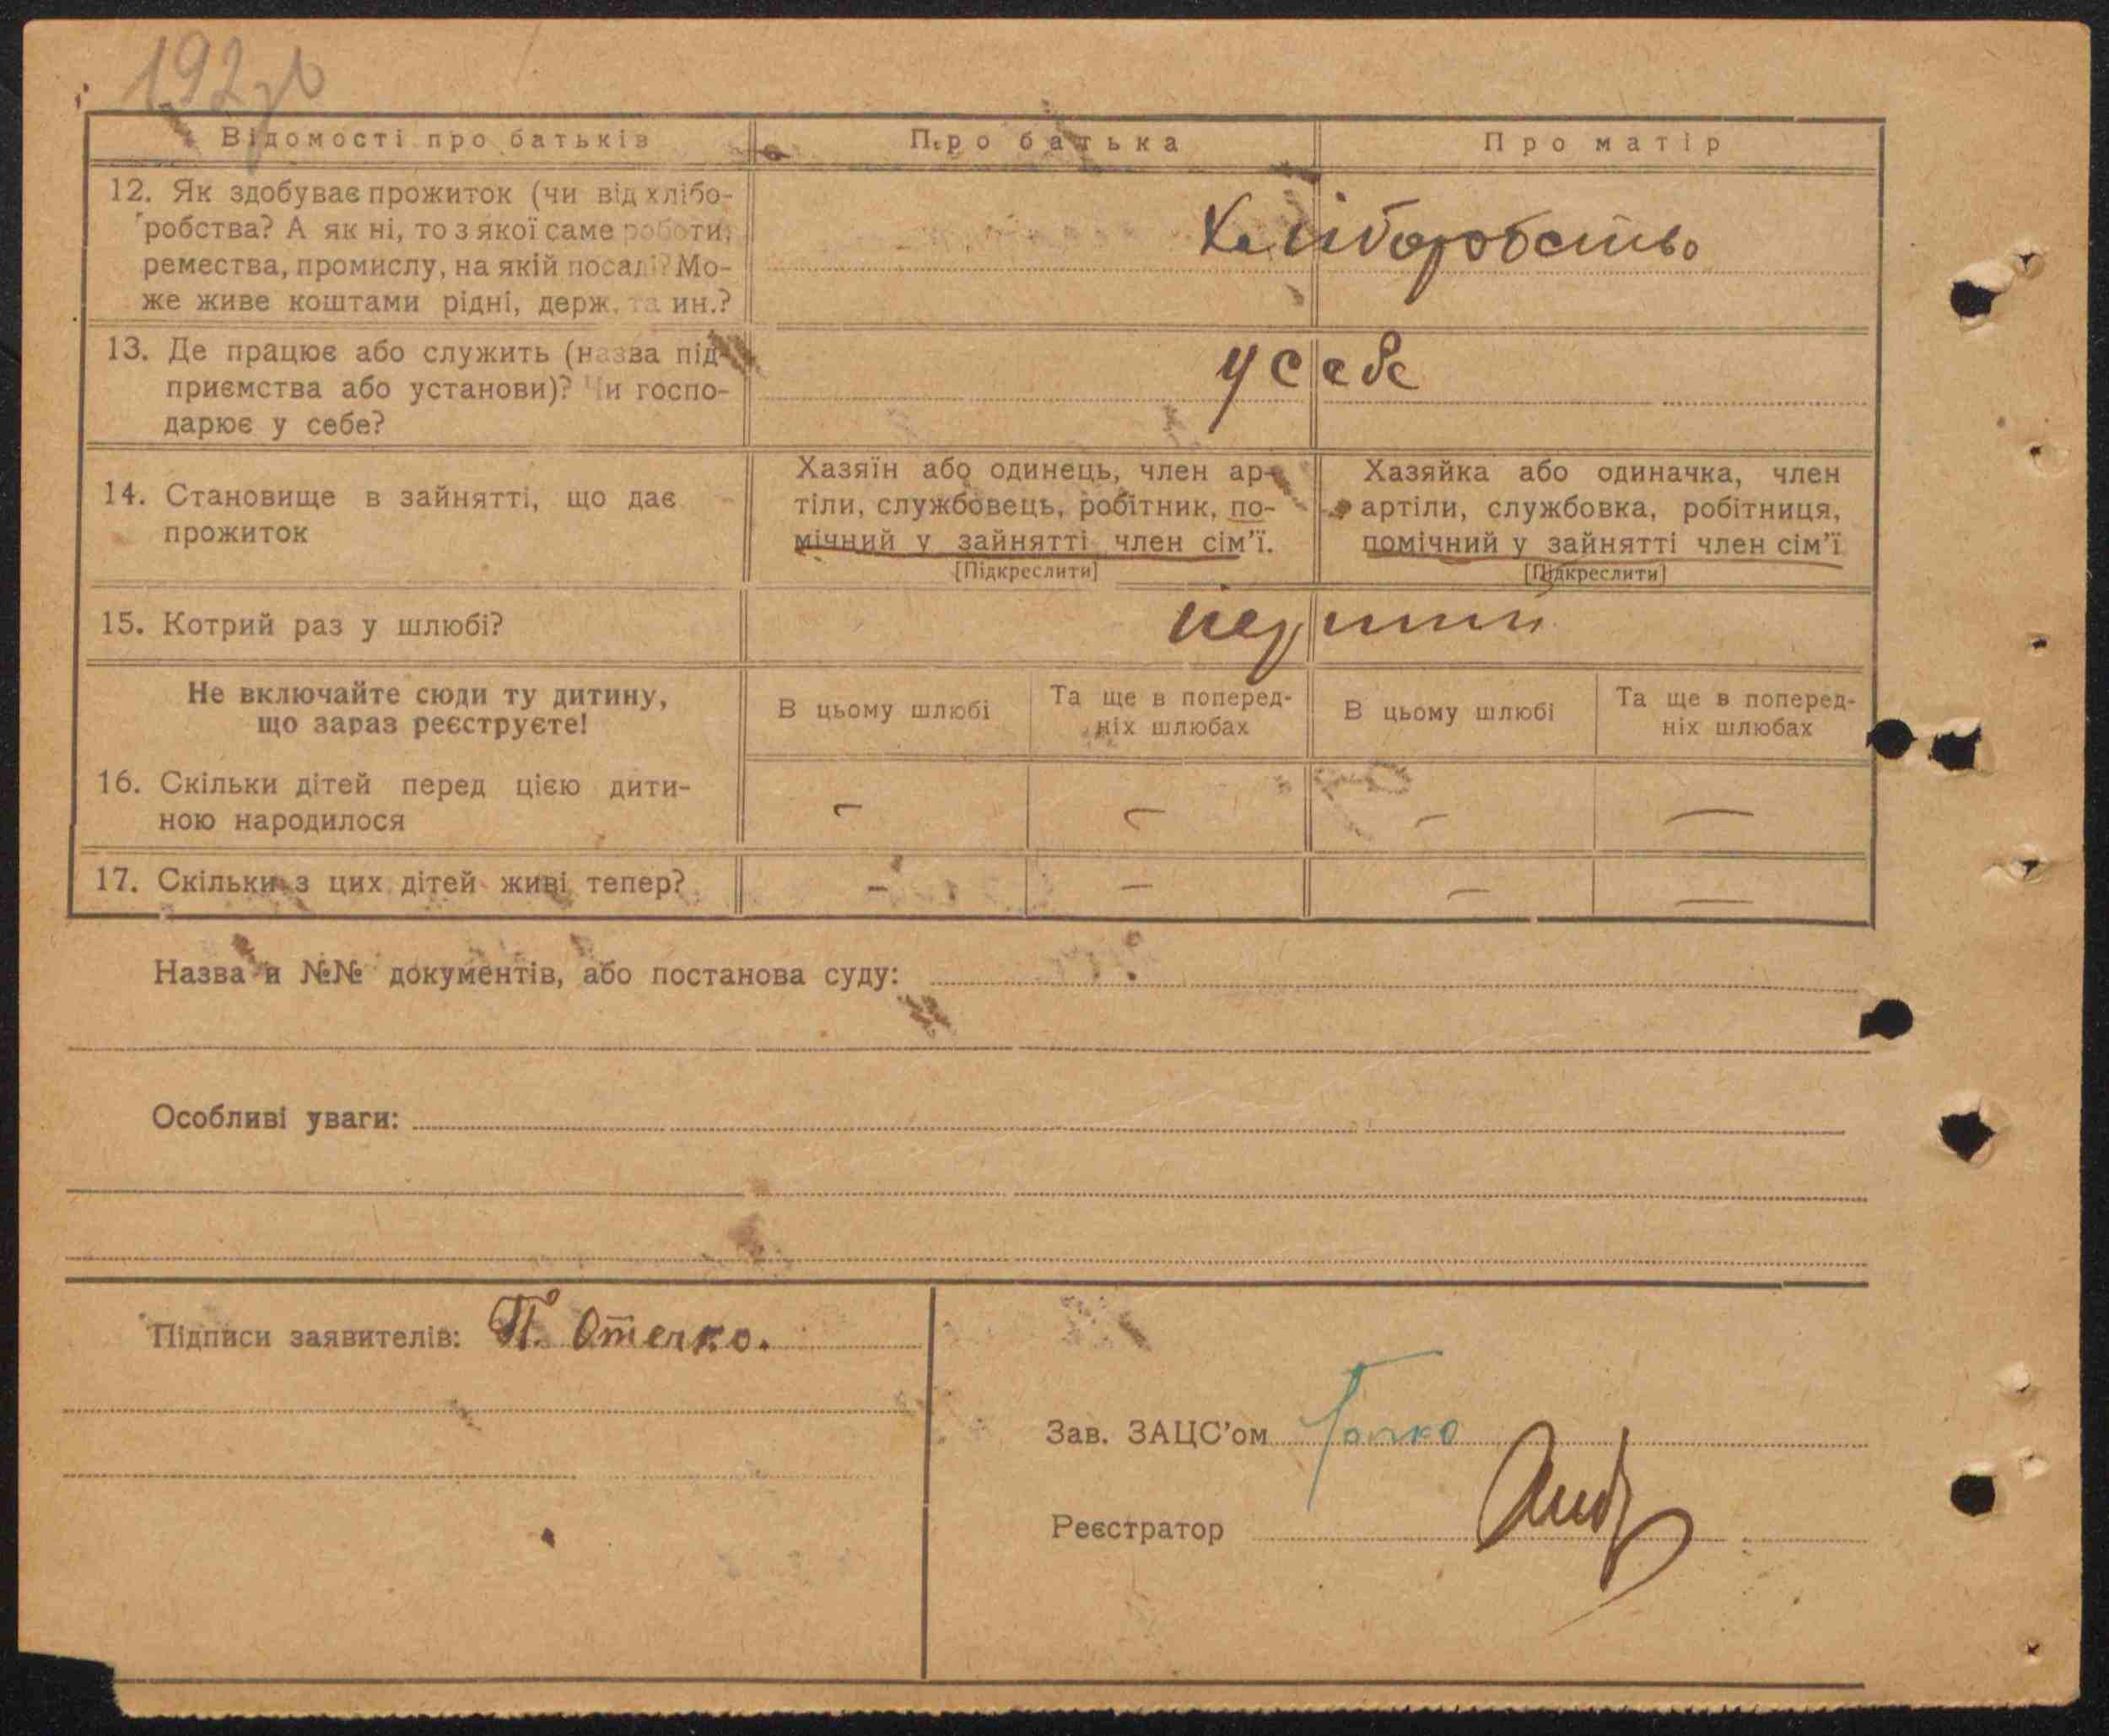 192зв
Відомості про батьків
Про батька
Про матір
12. Як здобуває прожиток (чи від хлібо-
робства? А як ні, то з якої саме роботи,
ремества, промислу, на якій посаді? Мо-
же живе коштами рідні, держ. та ин.?
Хліборобство
13. Де працює або служить (назва під-
приємства або установи)? Чи госпо-
дарює у себе?
у себе
14. Становище в зайнятті, що дає
прожиток
Хазяїн або одинець, член ар-
тіли, службовець, робітник, по-
мічний у зайнятті член сім'ї.
[Підкреслити]
Хазяйка або одиначка, член
артіли, службовка, робітниця,
помічний у зайнятті член сім'ї
[Підкреслити]
15. Котрий раз у шлюбі?
перший
Не включайте сюди ту дитину,
що зараз реєструєте!
В цьому шлюбі
Та ще в поперед-
ніх шлюбах
В цьому шлюбі
Та ще в поперед-
ніх шлюбах
16. Скільки дітей перед цією дити-
ною народилося
– – – –
17. Скільки з цих дітей живі тепер?
– – – –
Назва и №№ документів, або постанова суду:
Особливі уваги:
Підписи заявителів: П. Отечко.
Зав. ЗАЦС'ом
Реєстратор